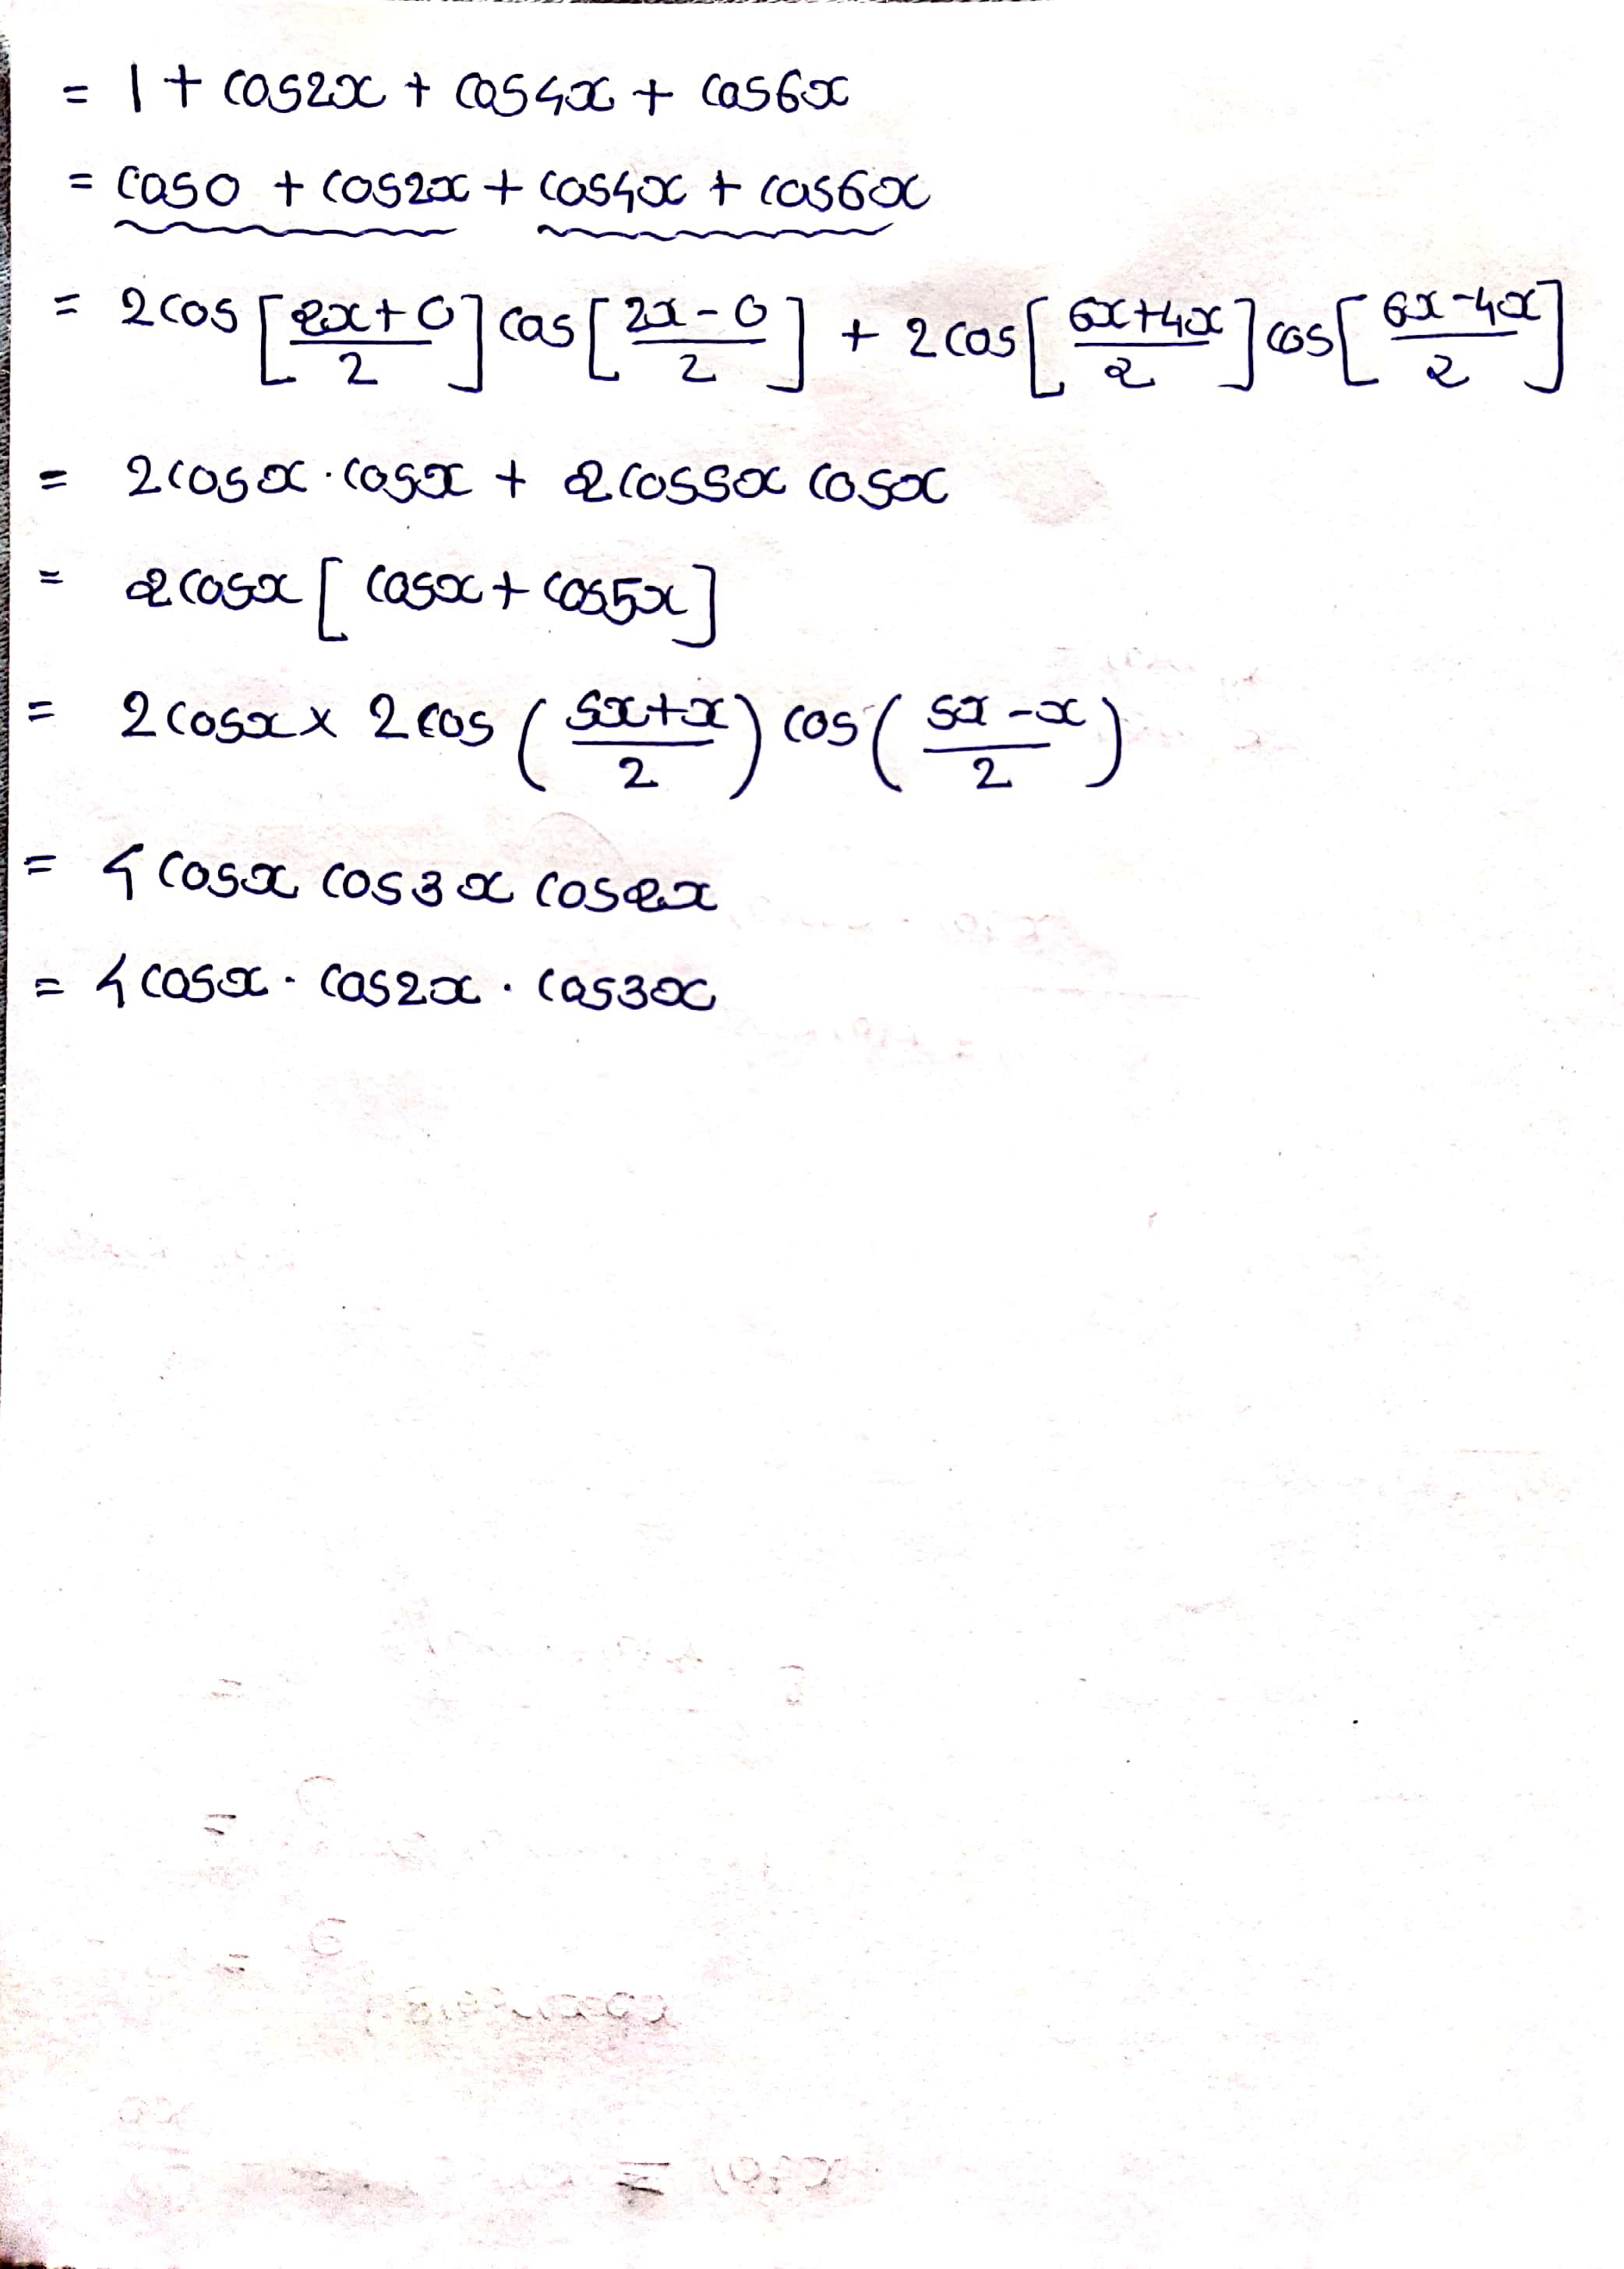 = 1 + cos2x + cos4x + cos6x
= cos0 + cos2x + cos4x + cos6x
= 2cos[(2x+0)/2] cos[(2x-0)/2] + 2cos[(6x+4x)/2] cos[(6x-4x)/2]
= 2cosx·cosx + 2cos5x cosx
= 2cosx[cosx + cos5x]
= 2cosx × 2cos((5x+x)/2) cos((5x-x)/2)
= 4cosx cos3x cos2x
= 4cosx · cos2x · cos3x